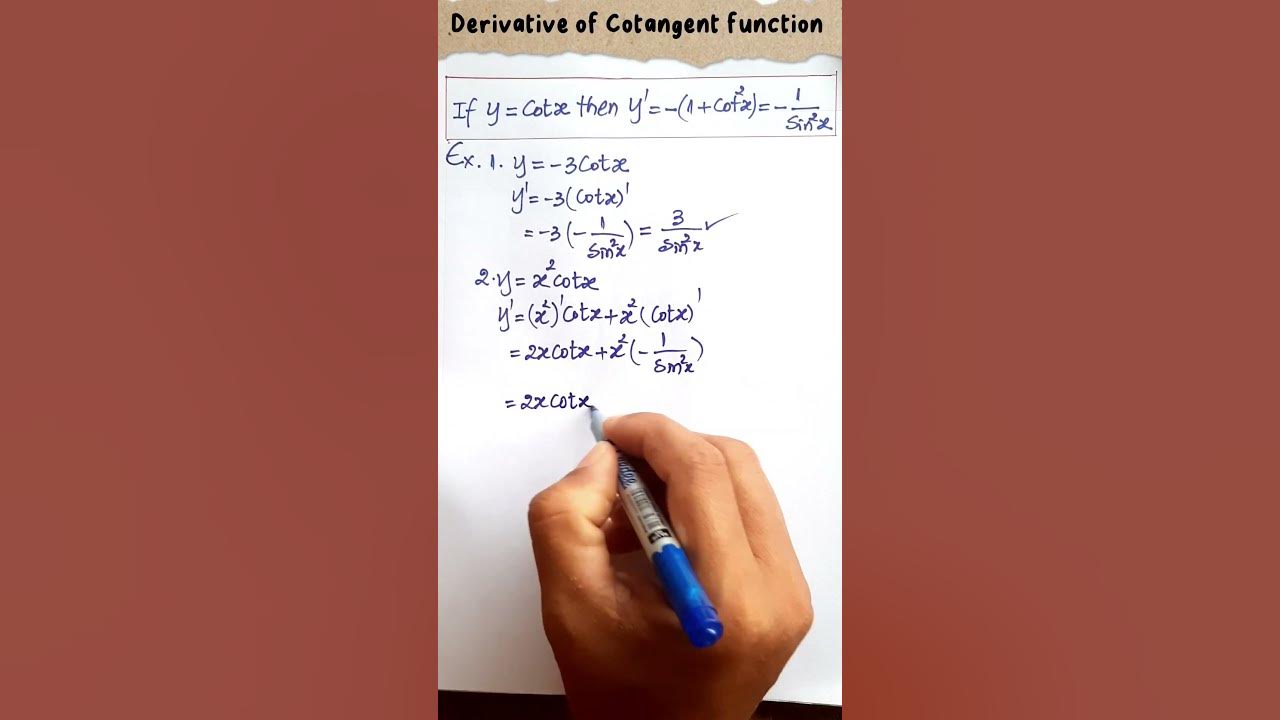 Derivative of Cotangent function
If y = Cotx then y' = -(1+Cot²x) = -1/Sin²x
Ex. 1. y = -3Cotx
y' = -3(Cotx)'
= -3(-1/Sin²x) = 3/Sin²x ✓
2. y = x²cotx
y' = (x²)'Cotx + x²(Cotx)'
= 2xCotx + x²(-1/Sin²x)
= 2xCotx